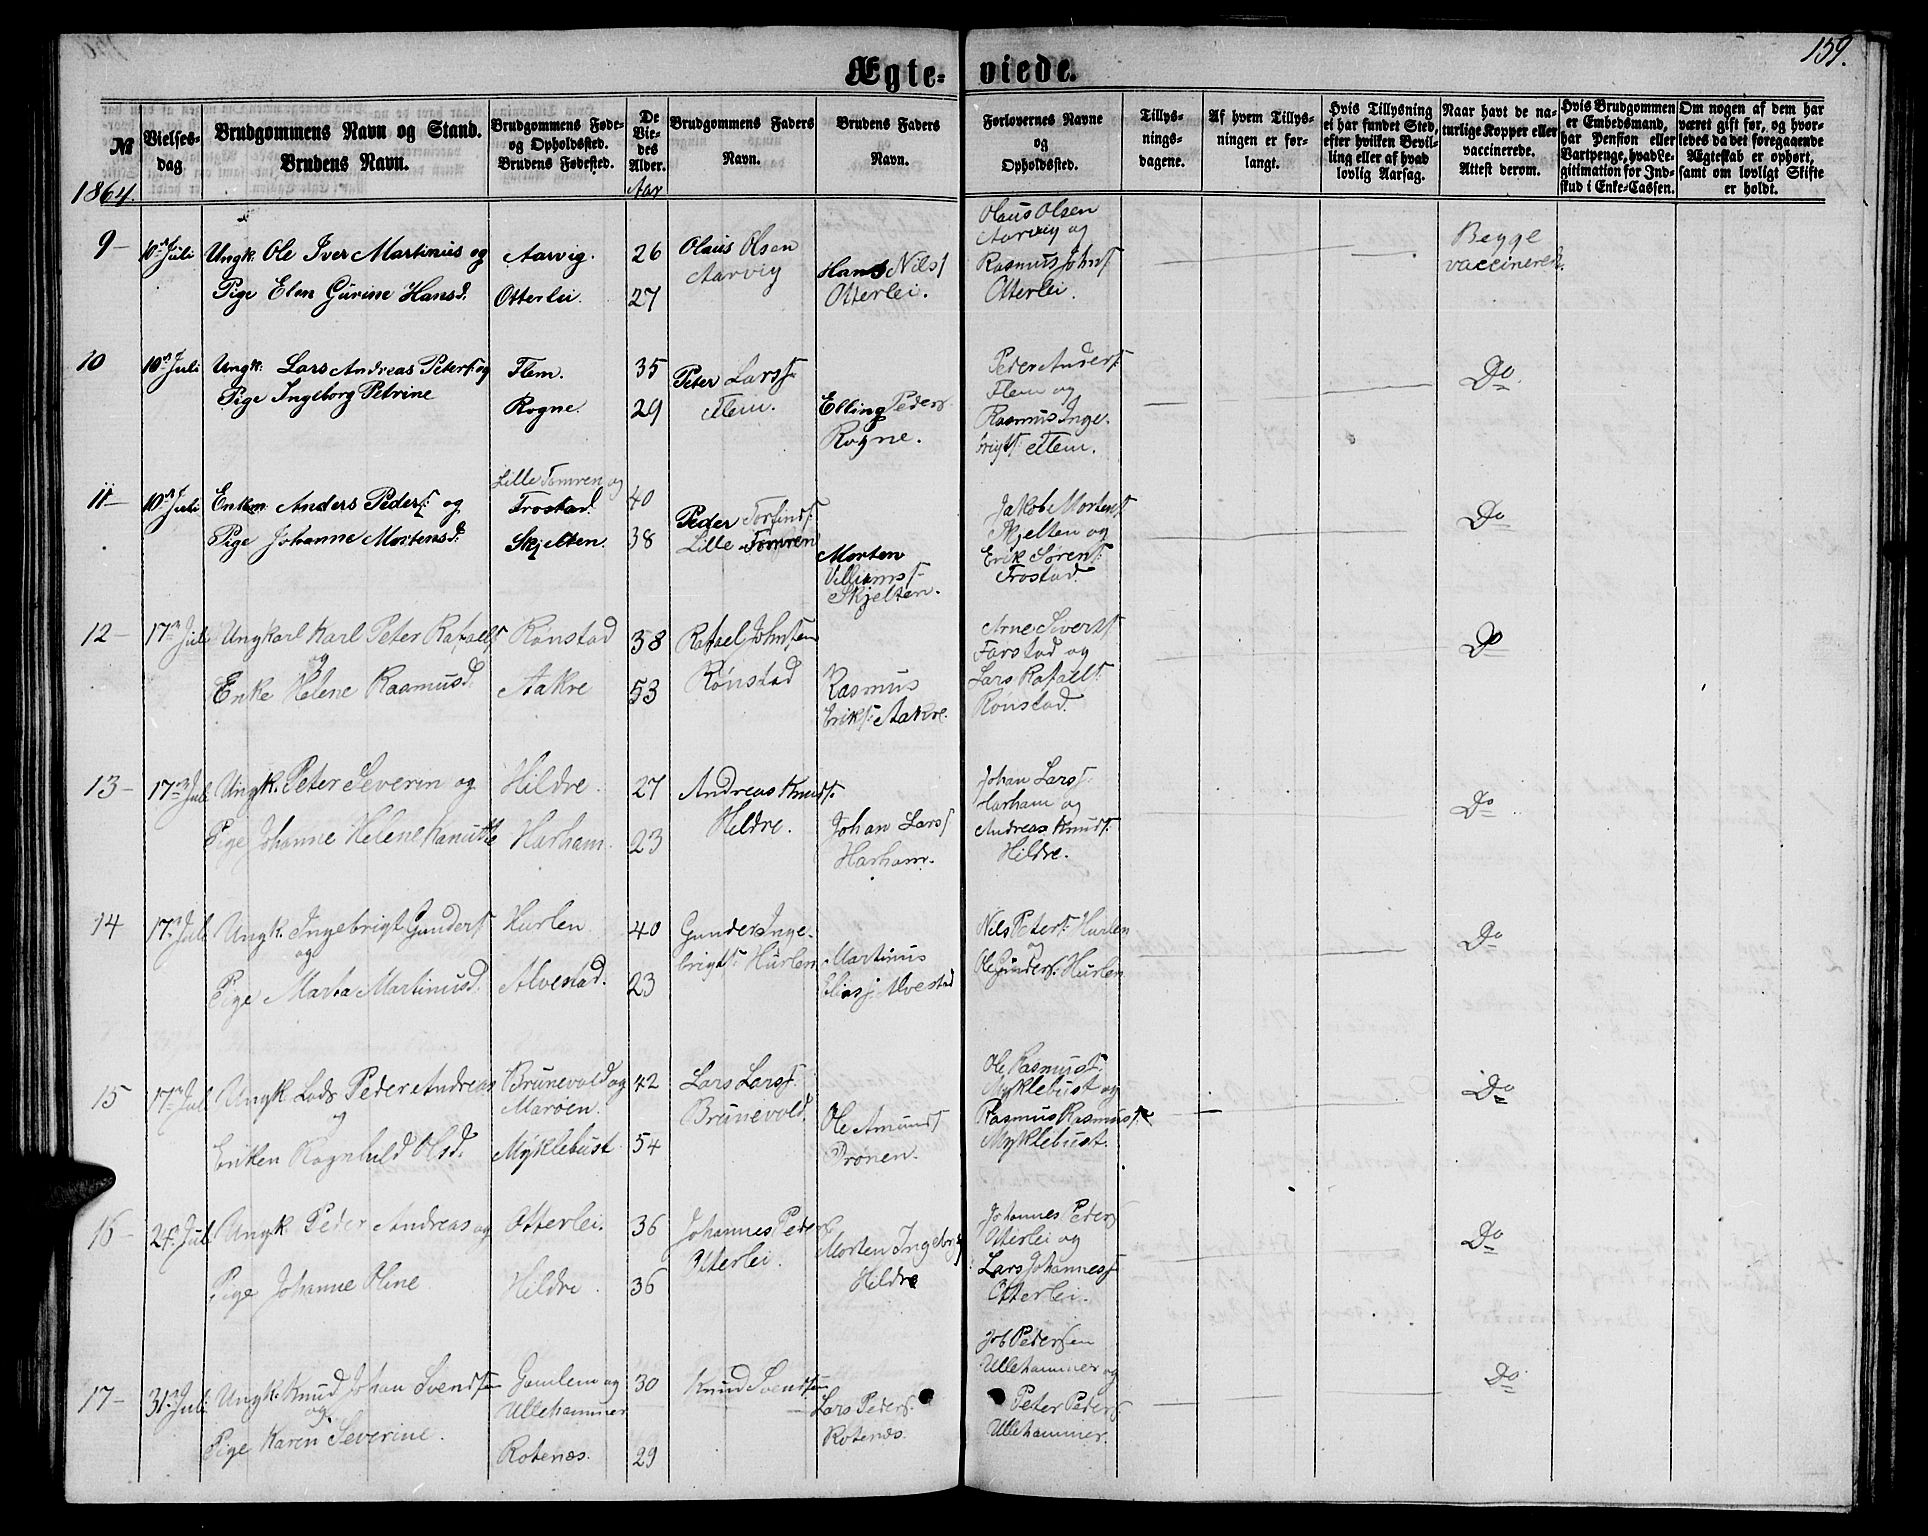 159.
Ægte- viede.
№
Vielses-
dag
Brudgommens Navn og Stand.
Brudens Navn.
Brudgommens Føde-
og Opholdssted.
Brudens Fødested.
De
Vie-
des
Alder.
Aar
Brudgommens Faders
Navn.
Brudens Faders
Navn.
Forlovernes Navne
og
Opholdssted.
Tillys-
nings-
dagene.
Af hvem Tillys-
ningen er for-
langt.
Hvis Tillysning
ei har fundet Sted,
efter hvilken Bevil-
ling eller af hvad
lovlig Aarsag.
Naar havt de na-
turlige Kopper eller
vaccinerede.
Attest derom.
Hvis Brudgommen
er Embedsmand,
har Pension eller
Vartpenge, hvad Le-
gitimation for Ind-
skud i Enke-Cassen.
Om nogen af dem har
været gift før, og hvor-
ledes da det foregaaende
Ægteskab er ophørt,
samt om lovligt Skifte
er holdt.
1864.
9- 10n Juli Ungk. Ole Iver Martinus og
Pige Elen Gurine Hansd.
Aarvig.
Otterlei.
26
27
Olaus Olsen
Aarvig
Hans Nilss
Otterlei.
Olaus Olsen
Aarvig og
Rasmus Johns
Otterlei.
Begge
vaccinerede.
10 10n Juli Ungk. Lars Andreas Peters. og
Pige Ingeborg Petrine
Flem.
Rogne.
35
29
Peter Larss
Flem.
Elling Peders
Rogne.
Peder Anders
Flem og
Rasmus Inge-
brigts: Flem.
Do
11- 10n Juli Enkem. Anders Peders: og
Pige Johanne Mortensd.
Lille Tomren og
Frostad.
Skjelten.
40
38
Peder Torfinds:
Lille Tomren
Morten
Villiams
Skjelten.
Jakob Mortens
Skjelten og
Erik Sørens:
Frostad.
Do
12- 17n Juli Ungkarl Karl Peter Rafaels
og
Enke Helene Rasmusd.
Rønstad
Aakre
38
53
Rafael Johnsen
Rønstad
Rasmus
Eriks: Aakre.
Arne Siverts
Farstad og
Lars Rafaels:
Rønstad.
Do
13- 17n Juli Ungk. Peter Severin og
Pige Johanne Helene Kanutte
Hildre.
Harham.
27
23
Andreas Knuds.
Hildre.
Johan Larss
Harham.
Johan Larss.
Harham og
Andreas Knuds:
Hildre.
Do
14 17n Juli Ungk. Ingebrigt Gunders
og
Pige Marta Martinusd.
Hurlen
Alvestad.
40
23
Gunder Inge-
brigts: Hurlen
Martinus
Elias: Alvestad
Nils Peters: Hurlen
og
Ole Gunders: Hurlen
Do
15 17n Juli Ungk. Lods Peder Andreas
og
Enken Ragnhild Olsd.
Brunevold og
Marøen.
Myklebust
42
54
Lars Larss.
Brunevold.
Ole Amunds
Dronen.
Ole Rasmus:
Myklebust og
Rasmus Rasmus:
Myklebust.
Do
16- 24. Juli Ungk. Peder Andreas og
Pige Johanne Oline
Otterlei.
Hildre
36
36
Johannes Peders
Otterlei.
Morten Ingebrigts
Hildre
Johannes Peders
Otterlei og
Lars Johannes:
Otterlei.
Do
17- 31n Juli Ungk. Knud Johan Svendsen
og
Pige Karen Severine.
Gamlem og
Ullehammer
Rotenæs.
30
29
Knud Svendsen
Lars Peders.
Rotenæs.
Job Pedersen
Ullehammer og
Peter Peders.
Ullehammer.
Do